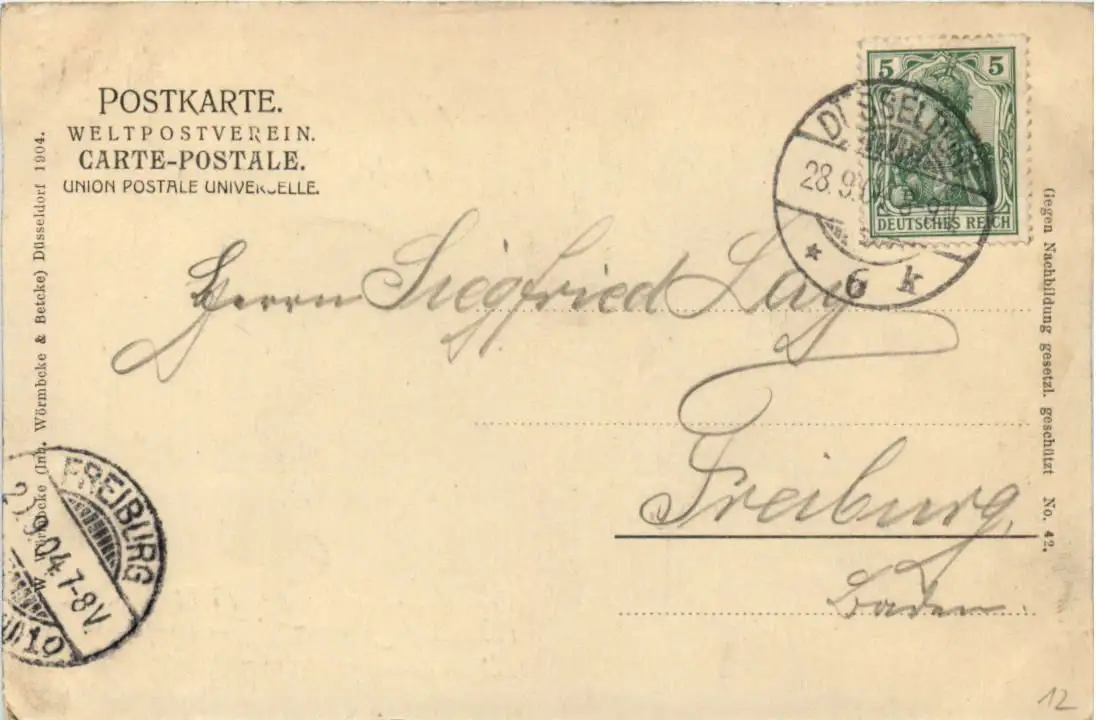 POSTKARTE.
WELTPOSTVEREIN.
CARTE-POSTALE.
UNION POSTALE UNIVERSELLE.
5 5
DEUTSCHES REICH
DÜSSELDORF
28.9.04
* 6 k
Herrn Siegfried Lay
Freiburg,
Baden.
W. Wörmbcke (Inh. Wörmbcke & Betcke) Düsseldorf 1904.
Gegen Nachbildung gesetzl. geschützt No. 42.
FREIBURG
9.04.7-8V.
12